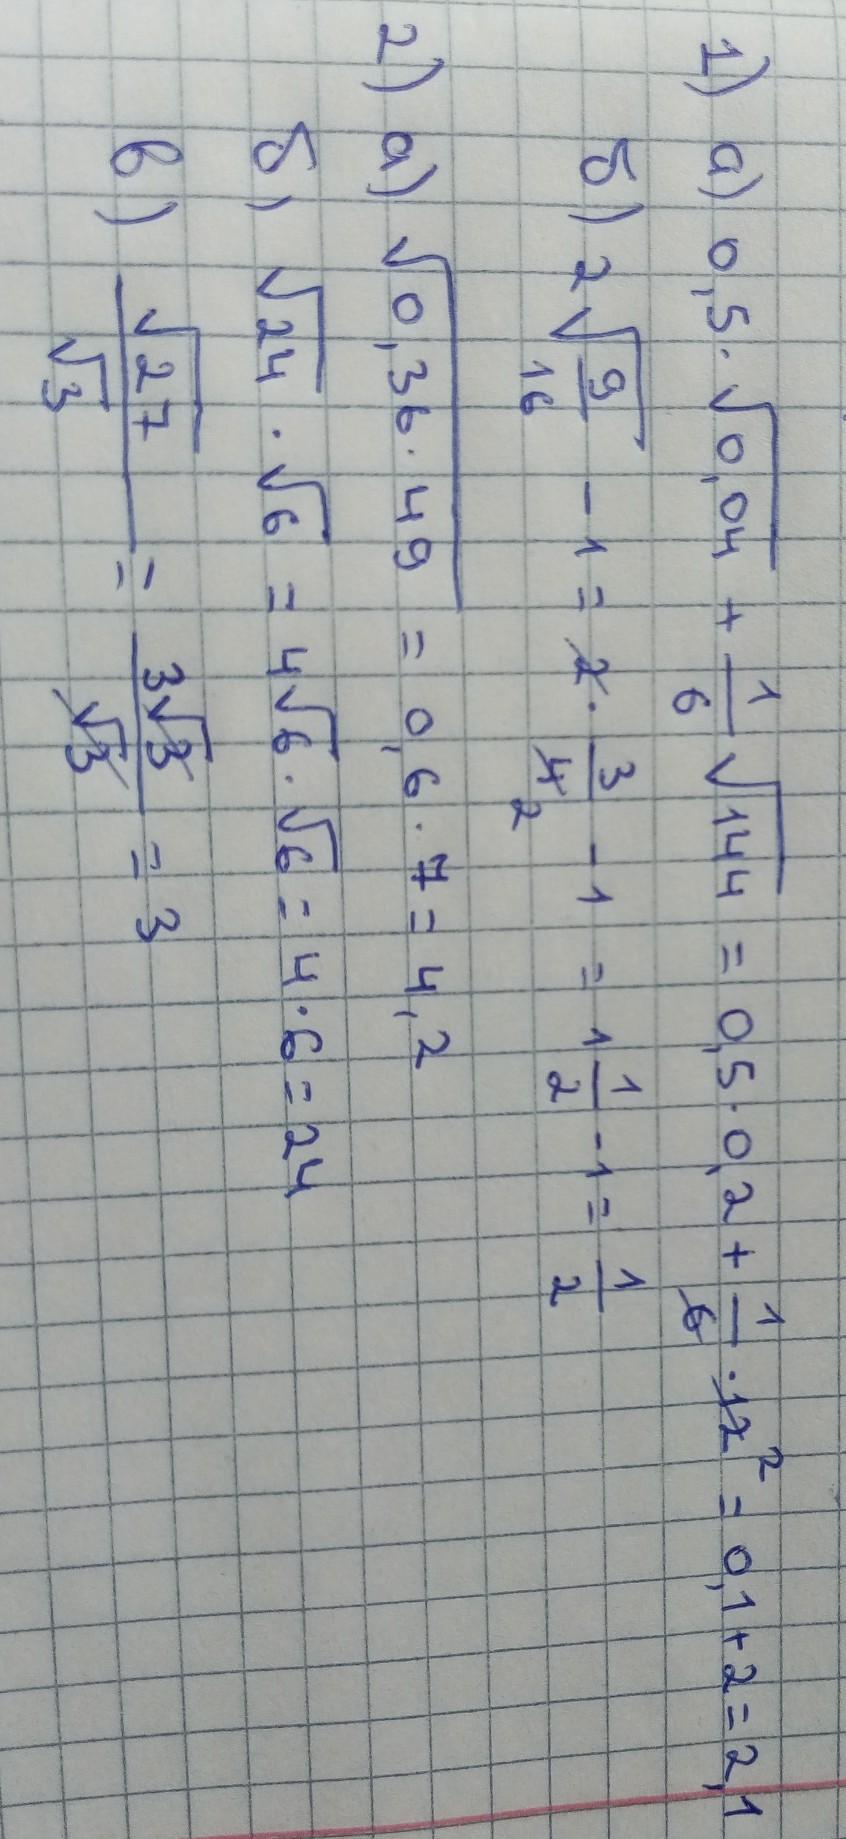 1) а) 0,5·√0,04 + 1/6 √144 = 0,5·0,2 + 1/6 ·12² = 0,1+2=2,1
б) 2√9/16 - 1 = 2· 3/4 2 - 1 = 1 1/2 - 1 = 1/2
2) а) √0,36·49 = 0,6·7=4,2
б) √24·√6 = 4√6·√6 = 4·6=24
в) √27/√3 = 3√3/√3 = 3